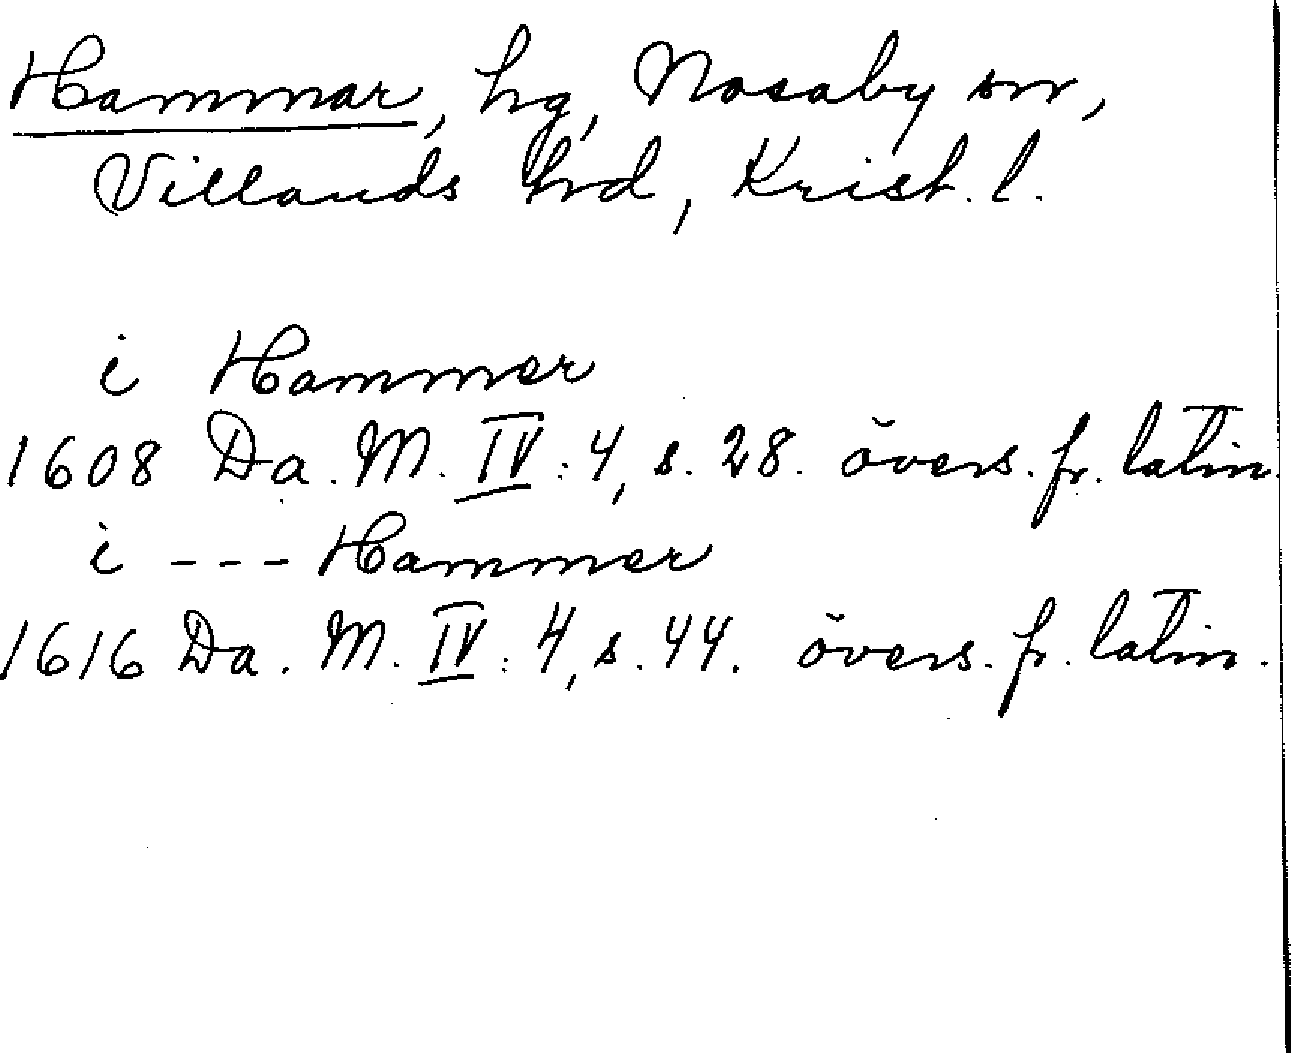 Hammar, hg, Nosaby sn,
Villands hd, Krist. l.
i Hammer
1608 Da. M. IV: 4, s. 28. övers. fr. latin.
i --- Hammer
1616 Da. M. IV: 4, s. 44. övers. fr. latin.